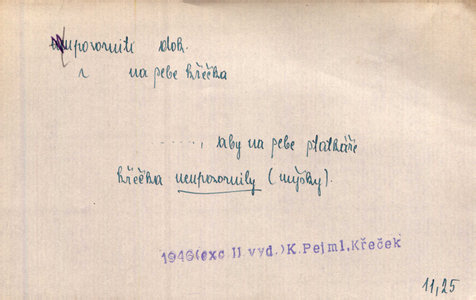 upozorniti dok.
2 na sebe křečka
....., aby na sebe ptatkáře
křečka neupozornily (myšky).
1946(exc.II vyd.)K.Pejml,Křeček
11,25